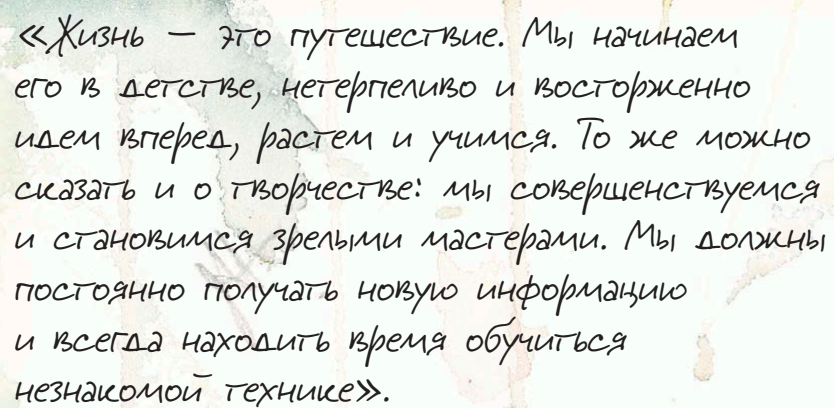 «Жизнь — это путешествие. Мы начинаем
его в детстве, нетерпеливо и восторженно
идем вперед, растем и учимся. То же можно
сказать и о творчестве: мы совершенствуемся
и становимся зрелыми мастерами. Мы должны
постоянно получать новую информацию
и всегда находить время обучиться
незнакомой технике».